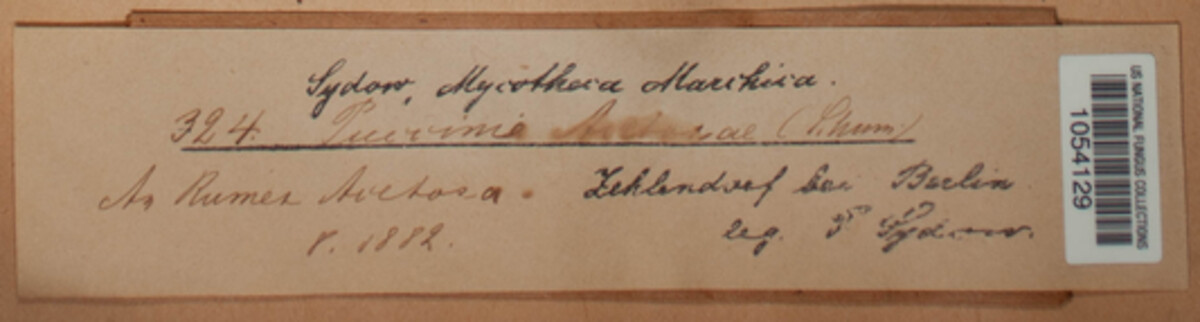 Sydow, Mycotheca Marchica.
324. Puccinia Acetosae (Schum)
An Rumex Acetosa. Zehlendorf bei Berlin
8. 1882. leg. P Sydow.
US NATIONAL FUNGUS COLLECTIONS
1054129